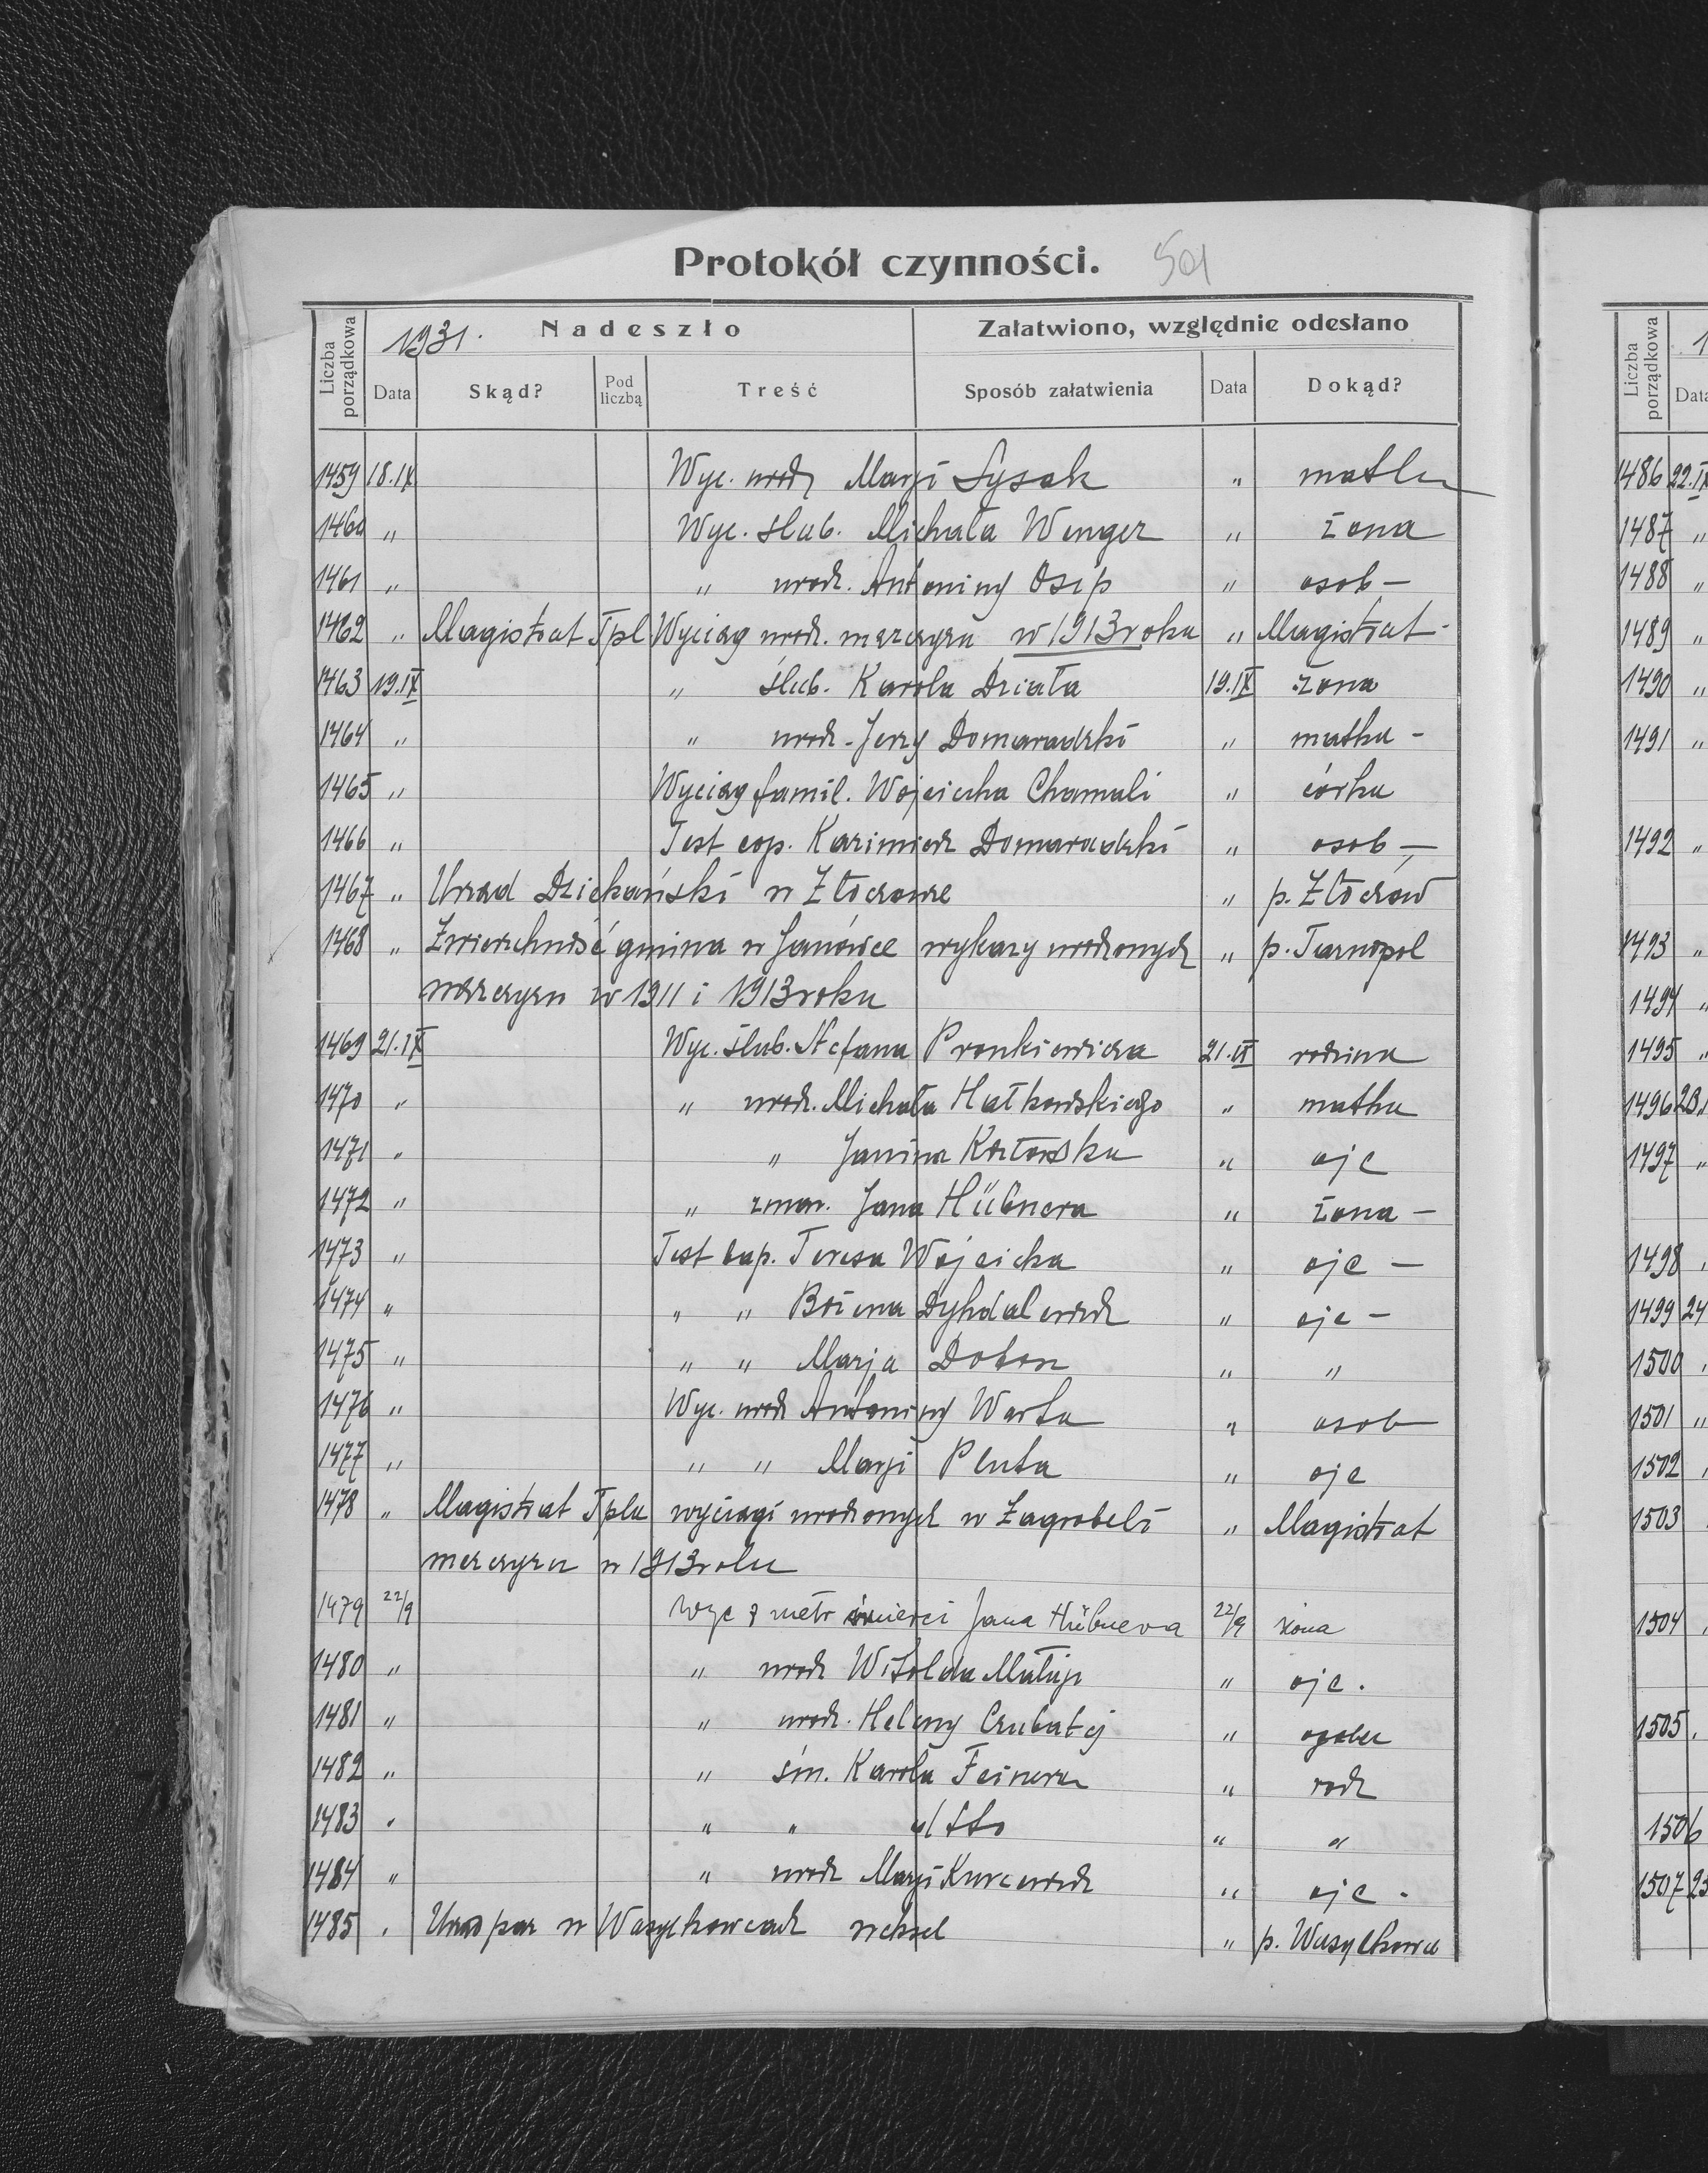 Protokół czynności. 501
Liczba porządkowa 1931. Nadeszło Załatwiono, względnie odesłano
Data Skąd? Pod liczbą Treść Sposób załatwienia Data Dokąd?
1459 18.IX Wyc. urodz Marji Łysak " matka
1460 " Wyc. ślub. Michała Wenger " żona
1461 " " urodz. Antoniny Osip " osob –
1462 " Magistrat Tpl Wyciąg urodz. mężczyzn w 1913 roku " Magistrat -
1463 19.IX " ślub. Karola Działa 19.IX żona
1464 " " urodz. Jerzy Domaradzki " matka -
1465 " Wyciąg famil. Wojciecha Chamuli " córka
1466 " Test cop. Kazimierz Domaradzki " osob –
1467 " Urząd Dziekański w Złoczowie " p. Złoczów
1468 " Zwierzchność gminna w Janówce wykazy urodzonych " p. Tarnopol
mężczyzn w 1911 i 1913 roku
1469 21.IX Wyc. ślub. Stefana Pronkiewicza 21.IX rodzina
1470 " " urodz. Michała Hałkowskiego " matka
1471 " " Janina Kozłowska " ojc
1472 " " zmar. Jana Hübnera " żona –
1473 " Test bap. Teresa Wojcicka " ojc –
1474 " " " Bożena Dyhdalewicz " ojc –
1475 " " " Marja Dobosz " "
1476 " Wyc. urodz Antoniny Warta " osob
1477 " " " Marji Pluta " ojc
1478 " Magistrat Tpla wyciągi urodzonych w Zagrobeli " Magistrat
mężczyzn w 1913 roku
1479 22/9 Wyc z metr śmierci Jana Hübnera 22/9 żona
1480 " " urodz Witolda " ojc.
1481 " " urodz. Heleny Czubatej " osoba
1482 " " śm. Karola Feinera " rodz
1483 " " " dtto " "
1484 " " urodz Marji Kurcewicz " ojc.
1485 " Urząd par w Wasylkowcach " p. Wasylkowce
Liczba porządkowa 1
Data
1486 22.IX
1487 "
1488 "
1489 "
1490 "
1491 "
1492 "
1493 "
1494 "
1495 "
1496 23.
1497 "
1498
1499 24
1500
1501 "
1502
1503
1504
1505
1506
1507 25